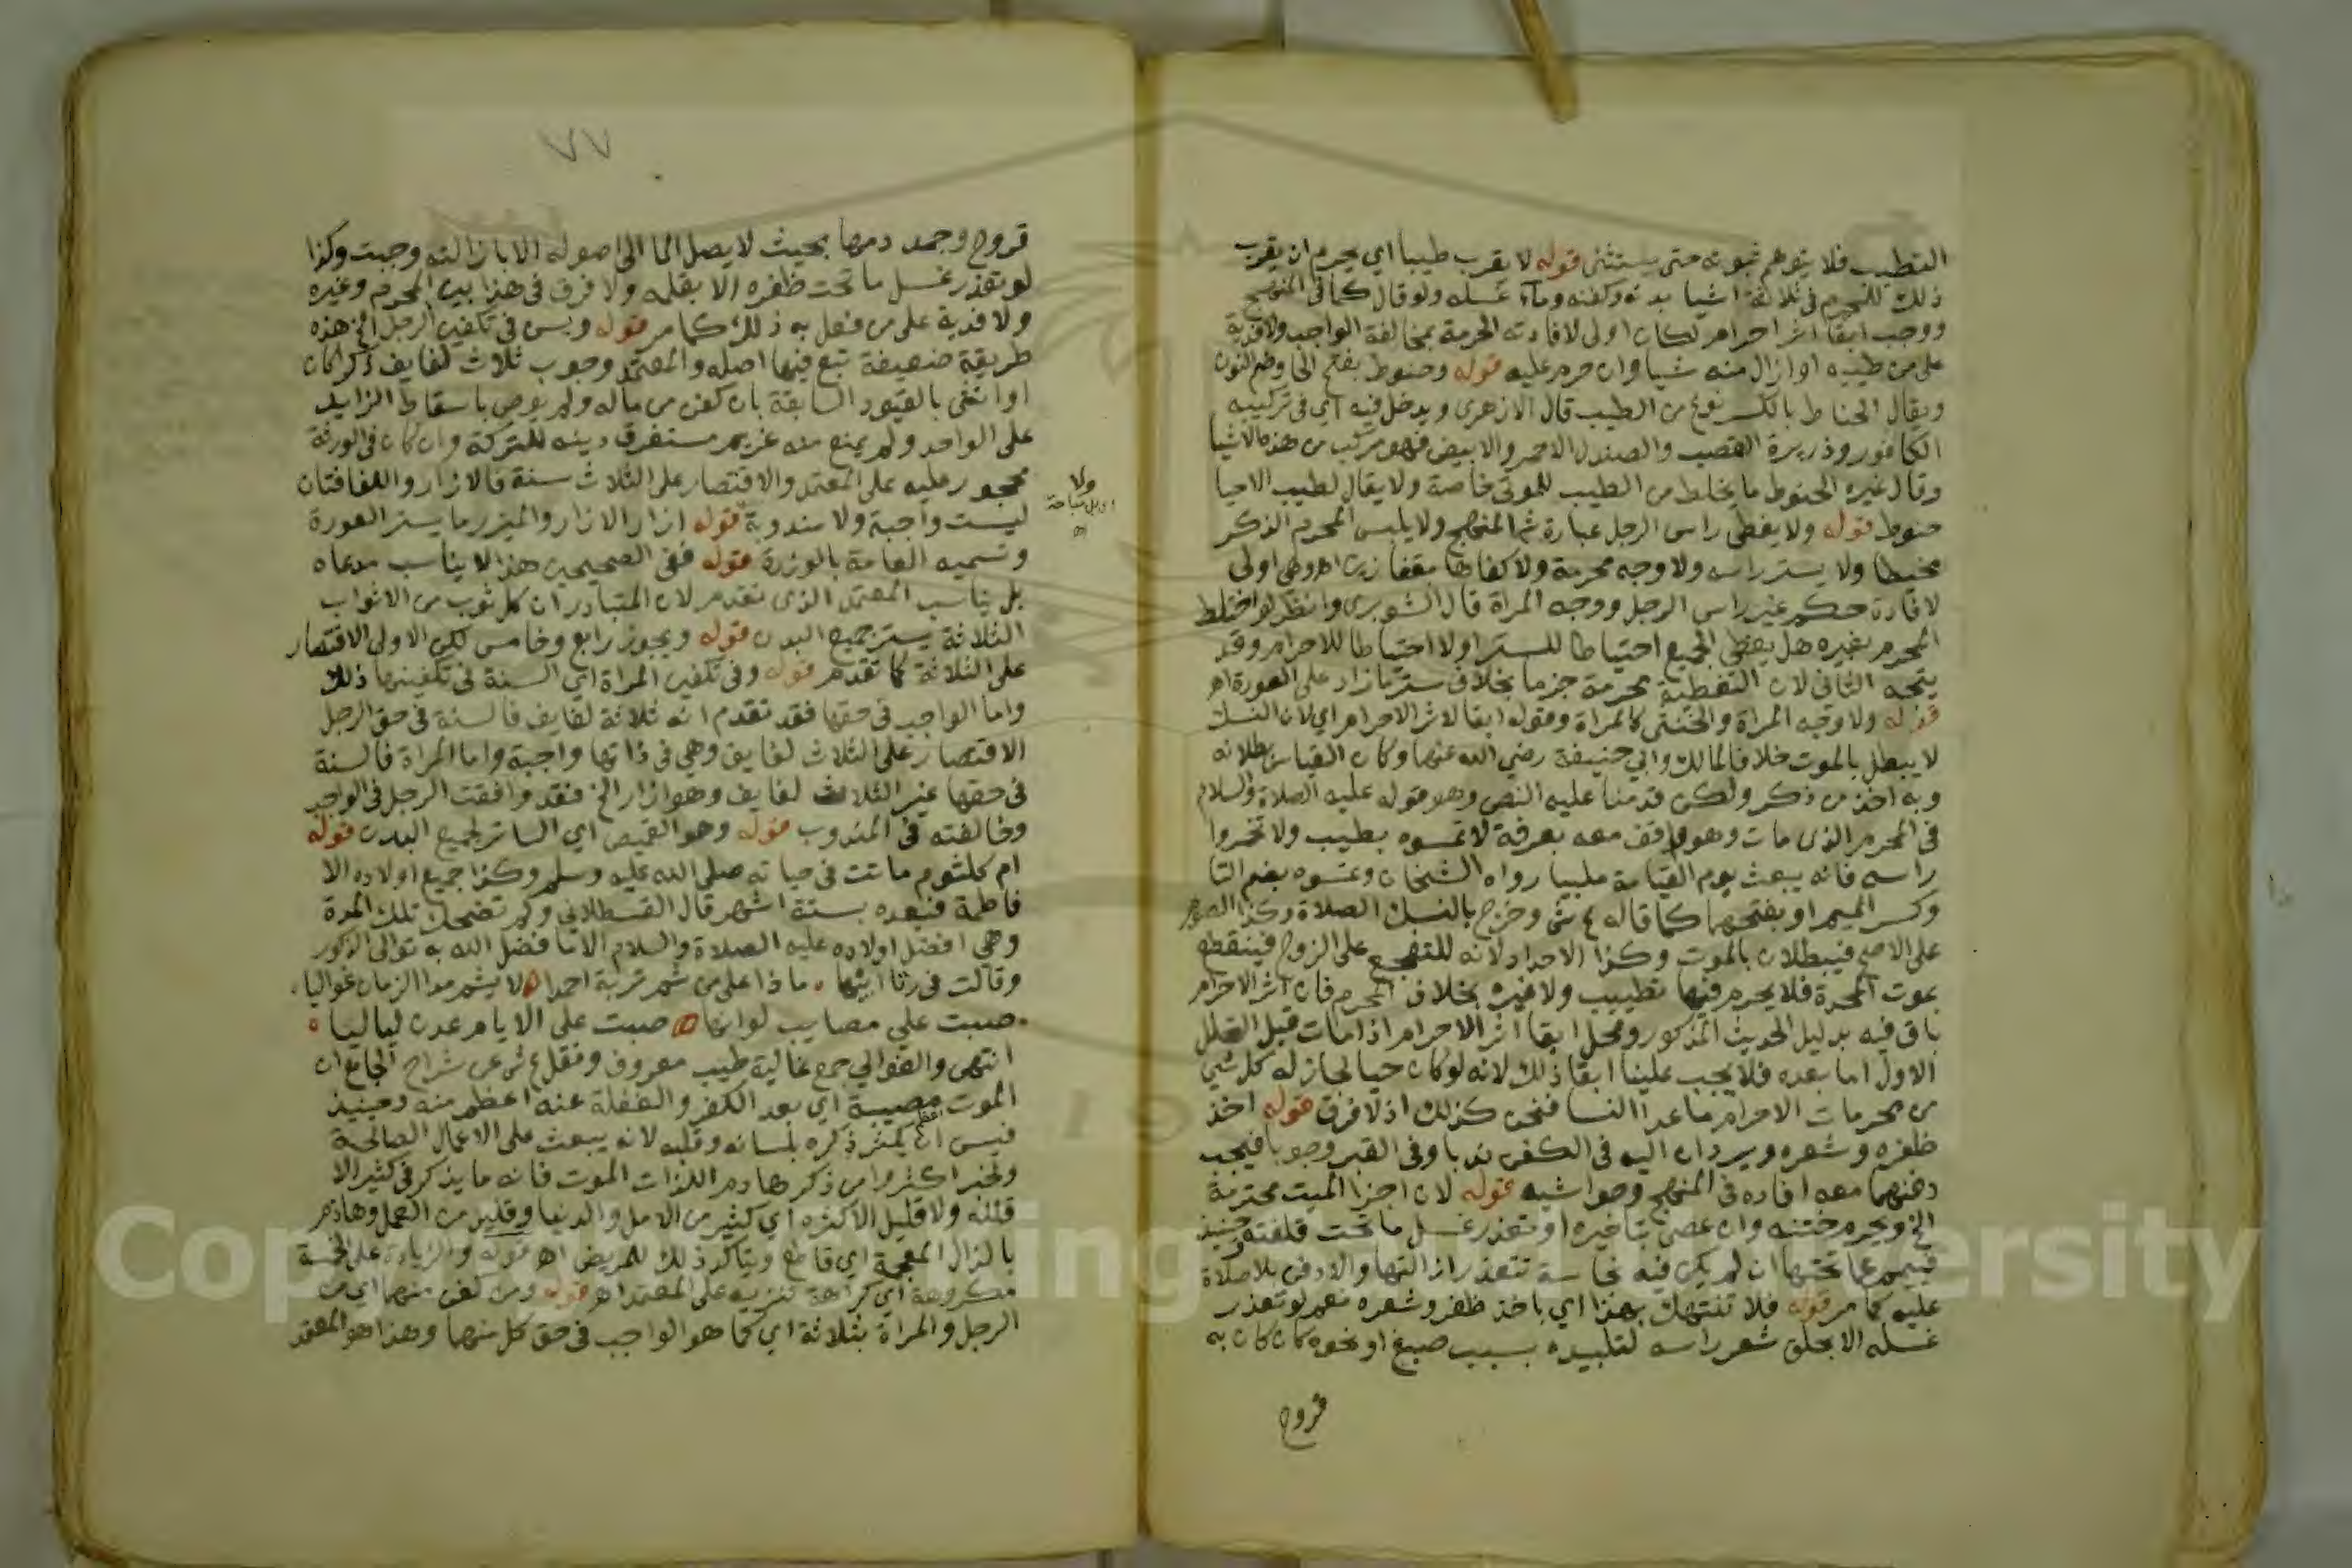 التطييب فلا يتوهم ثبوته حتى يستثنى قوله لا يقرب طيبا اي يحرم ان يقرب
ذلك للمحرم في ثلاثة اشيا بدنه وكفنه وماء غسله ولو قال كما في المنهج
ووجب ابقا اثر احرام لكان اولى لافادته الحرمة بمخالفة الواجب ولا فدية
على من طيبه او ازال منه شيا وان حرم عليه قوله وحنوط بفتح الحا وضم النون
ويقال الحناط بالكسر نوع من الطيب قال الازهري ويدخل فيه اي في تركيبه
الكافور وذريرة القصب والصندل الاحمر والابيض فهو مركب من هذه الاشيا
وقال غيره الحنوط ما يخلط من الطيب للموتى خاصة ولا يقال لطيب الاحيا
حنوط قوله ولا يغطى راس الرجل عبارة شم المنهج ولا يلبس المحرم الذكر
مخيطا ولا يستر راسه ولا وجه محرمة ولا كفاها بقفازين اه وهي اولى
لافادة حكم غير راس الرجل ووجه المراة قال الشوبري وانظر لو اختلط
المحرم بغيره هل يغطى الجميع احتياطا للستر اولا احتياطا للاحرام وقد
يتجه الثاني لان التغطية محرمة جزما بخلاف ستر ما زاد على العورة اه
قوله ولا وجه المراة والخنثى كالمراة وقوله ابقا لاثر الاحرام اي لان النسك
لا يبطل بالموت خلافا لمالك وابي حنيفة رضي الله عنهما وكان القياس بطلانه
وبه اخذ من ذكر ولكن قدمنا عليه النص وهو قوله عليه الصلاة والسلام
في المحرم الذي مات وهو واقف معه بعرفة لا تمسوه بطيب ولا تخمروا
راسه فانه يبعث يوم القيامة ملبيا رواه الشيخان وتمسوه بضم التا
وكسر الميم او بفتحهما كما قاله ع ش وخرج بالنسك الصلاة وكذا الصوم
على الاصح فيبطلان بالموت وكذا الاحداد لانه للتفجع على الزوج فينقطع
بموت المحدة فلا يحرم فيها تطييب ولا غيره بخلاف المحرم فان اثر الاحرام
باق فيه بدليل الحديث المذكور ومحل ابقا اثر الاحرام اذا مات قبل التحلل
الاول اما بعده فلا يجب علينا ابقا ذلك لانه لو كان حيا لجاز له كل شي
من محرمات الاحرام ما عدا النسا فنحن كذلك اذ لا فرق قوله اخذ
ظفره وشعره ويردان اليه في الكفن ندبا وفي القبر وجوبا فيجب
دفنهما معه افاده في المنهج وحواشيه قوله لان اجزا الميت محترمة
الخ ويحرم ختنه وان عصى بتاخيره او تعذر غسل ما تحت قلفته وحينئذ
فييمم عما تحتها ان لم يكن فيه نجاسة تتعذر ازالتها والا دفن بلا صلاة
عليه كما مر قوله فلا تنتهك بهذا اي باخذ ظفر وشعره نعم لو تعذر
غسله الا بحلق شعر راسه لتلبيده بسبب صبغ او نحوه كان كان به
قروح
٧٧
قروح وجمد دمها بحيث لا يصل الما الى اصوله الا بازالته وجبت وكذا
لو تعذر غسل ما تحت ظفره الا بقلمه ولا فرق في هذا بين المحرم وغيره
ولا فدية على من فعل به ذلك كما مر قوله ويسن في تكفين الرجل الخ هذه
طريقة ضعيفة تبع فيها اصله والمعتمد وجوب ثلاث لفايف ذكر كان
او انثى بالقيود السابقة بان كفن من ماله ولم يوص باسقاط الزايد
على الواحد ولم يمنع منه غريم مستغرق دينه للتركة وان كان في الورثة
محجور عليه على المعتمد والاقتصار على الثلاث سنة فالازار واللفافتان
ليست واجبة ولا مندوبة قوله ازار الازار والميزر ما يستر العورة
ولا
اه
وتسميه العامة بالوزرة قوله ففي الصحيحين هذا لا يناسب مدعاه
بل يناسب المعتمد الذي تقدم لان المتبادر ان كل ثوب من الاثواب
الثلاثة يستر جميع البدن قوله ويجوز رابع وخامس لكن الاولى الاقتصار
على الثلاثة كما تقدم قوله وفي تكفين المراة اي السنة في تكفينها ذلك
واما الواجب في حقها فقد تقدم انه ثلاثة لفايف فالسنة في حق الرجل
الاقتصار على الثلاث لفايف وهي في ذاتها واجبة واما المراة فالسنة
في حقها غير الثلاث لفايف وهو ازار الخ فقد وافقت الرجل في الواجب
وخالفته في المندوب قوله وهو القميص اي الساتر لجميع البدن قوله
ام كلثوم ماتت في حياته صلى الله عليه وسلم وكذا جميع اولاده الا
فاطمة فبعده بستة اشهر قال القسطلاني ولم تضحك تلك المدة
وهي افضل اولاده عليه الصلاة والسلام الاناث فضل الله به توالى الذكور
وقالت في رثا ابيها ماذا على من شم تربة احمدا لا يشم مدا الزمان غواليا
صبت علي مصايب لو انها صبت على الايام عدن لياليا
انتهى والغوالي جمع غالية طيب معروف ونقل ع ش عن شراح الجامع ان
الموت مصيبة اي بعد الكفر والغفلة عنه اعظم منه وحينئذ
فيسن ان يكثر ذكره بلسانه وقلبه لانه يبعث على الاعمال الصالحة
ولخبر اكثروا من ذكر هادم اللذات الموت فانه ما يذكر في كثير الا
قلله ولا قليل الا كثره اي كثير من الامل والدنيا وقليل من العمل وهاذم
بالذال المعجمة اي قاطع ويتاكد ذلك للمريض اه قوله والزيادة على الخمسة
مكروهة اي كراهة تنزيه على المعتمد اه قوله ومن كفن منهما اي من
الرجل والمراة بثلاثة اي كما هو الواجب في حق كل منهما وهذا هو المعتمد